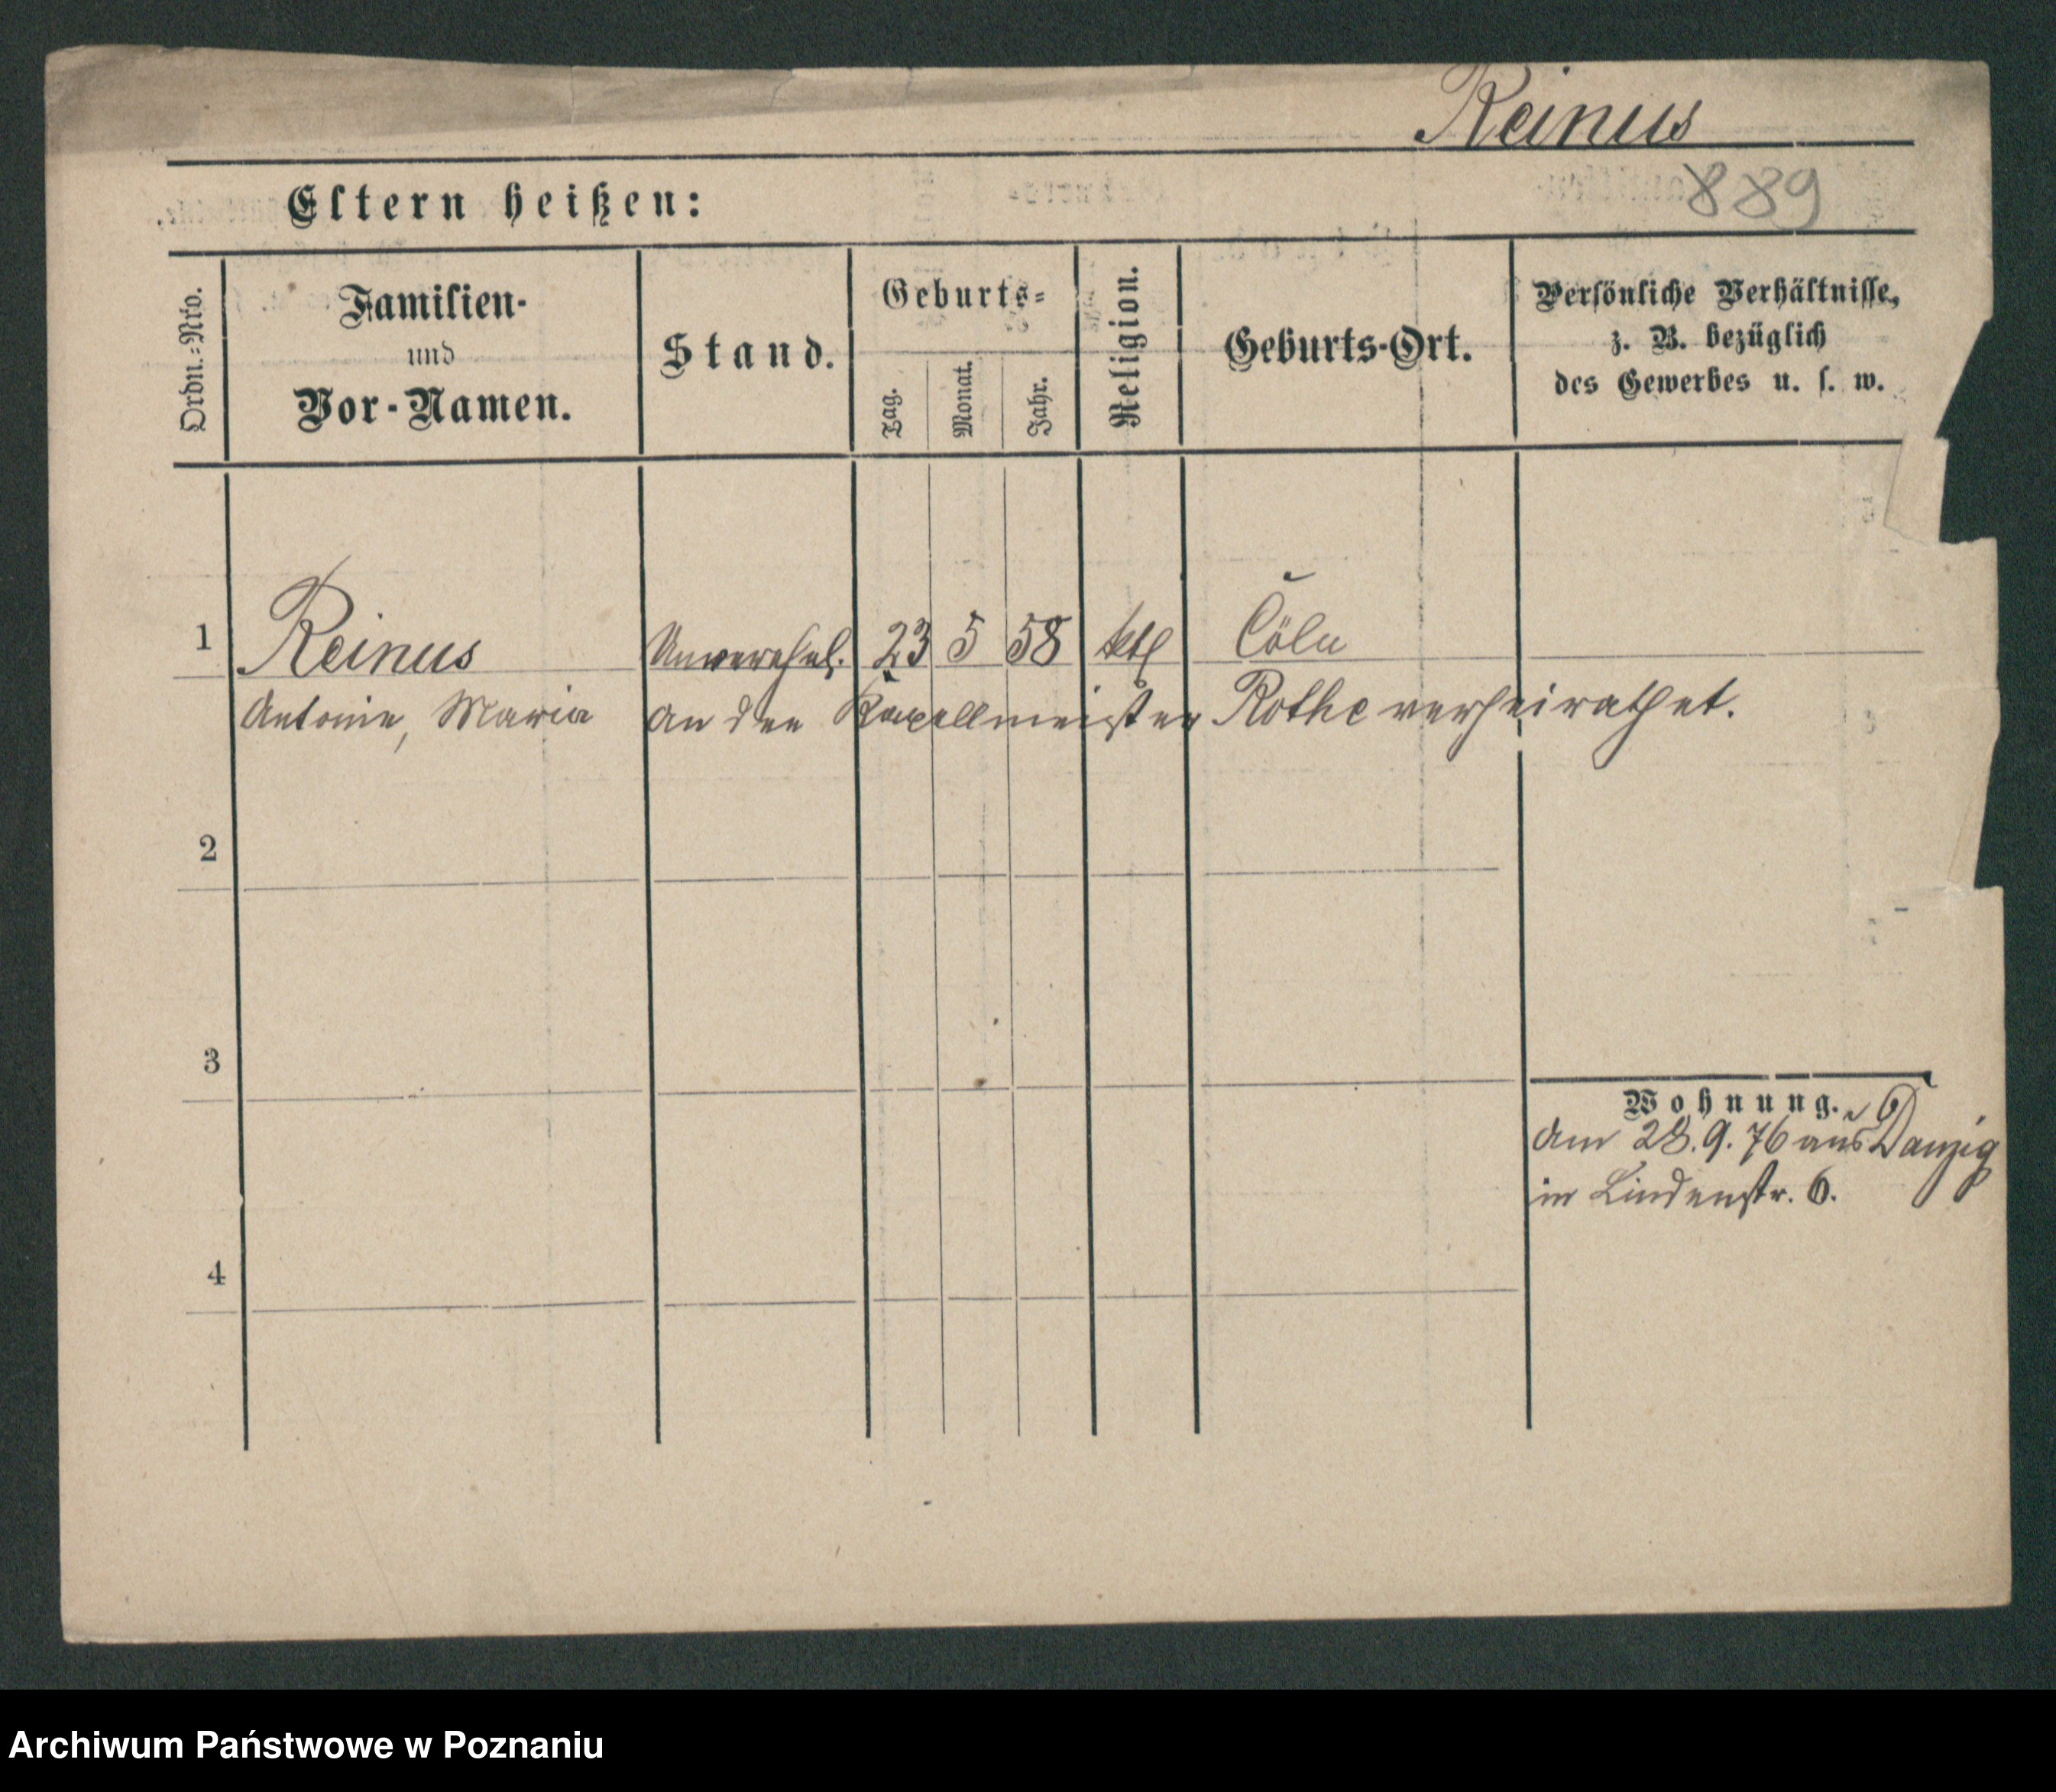 Reinus
889
Eltern heißen:
Ordn.-Nro.
Familien-
und
Vor-Namen.
Stand.
Geburts-
Tag.
Monat.
Jahr.
Religion.
Geburts-Ort.
Persönliche Verhältnisse,
z. B. bezüglich
des Gewerbes u. s. w.
1 Reinus Unverehel. 23 5 58 ktl Cöln
Antonie, Maria an den Kapellmeister Rothe verheirathet.
2
3
Wohnung.
am 28.9.76 aus Danzig
in Lindenstr. 6.
4
Archiwum Państwowe w Poznaniu